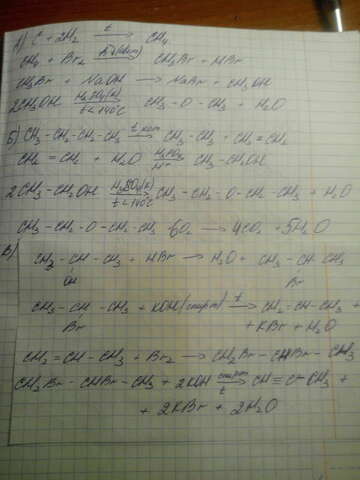 А) C + 2H₂ —t→ CH₄
CH₄ + Br₂ → CH₃Br + HBr
CH₃Br + NaOH → NaBr + CH₃OH
2CH₃OH —H₂SO₄(к) t<140°C→ CH₃-O-CH₃ + H₂O
Б) CH₃-CH₂-CH₂-CH₃ —t, кат→ CH₃-CH₃ + CH₂=CH₂
CH₂=CH₂ + H₂O → CH₃-CH₂OH
2CH₃-CH₂OH —H₂SO₄(к) t<140°C→ CH₃-CH₂-O-CH₂-CH₃ + H₂O
CH₃-CH₂-O-CH₂-CH₃ 6O₂ → 4CO₂ + 5H₂O
В) CH₃-CH-CH₃ + HBr → H₂O + CH₃-CH-CH₃
OH Br
CH₃-CH-CH₃ + KOH(спирт) —t→ CH₂=CH-CH₃ +
Br + KBr + H₂O
CH₂=CH-CH₃ + Br₂ → CH₂Br-CHBr-CH₃
CH₂Br-CHBr-CH₃ + 2KOH —спирт t→ CH≡C-CH₃ +
+ 2KBr + 2H₂O